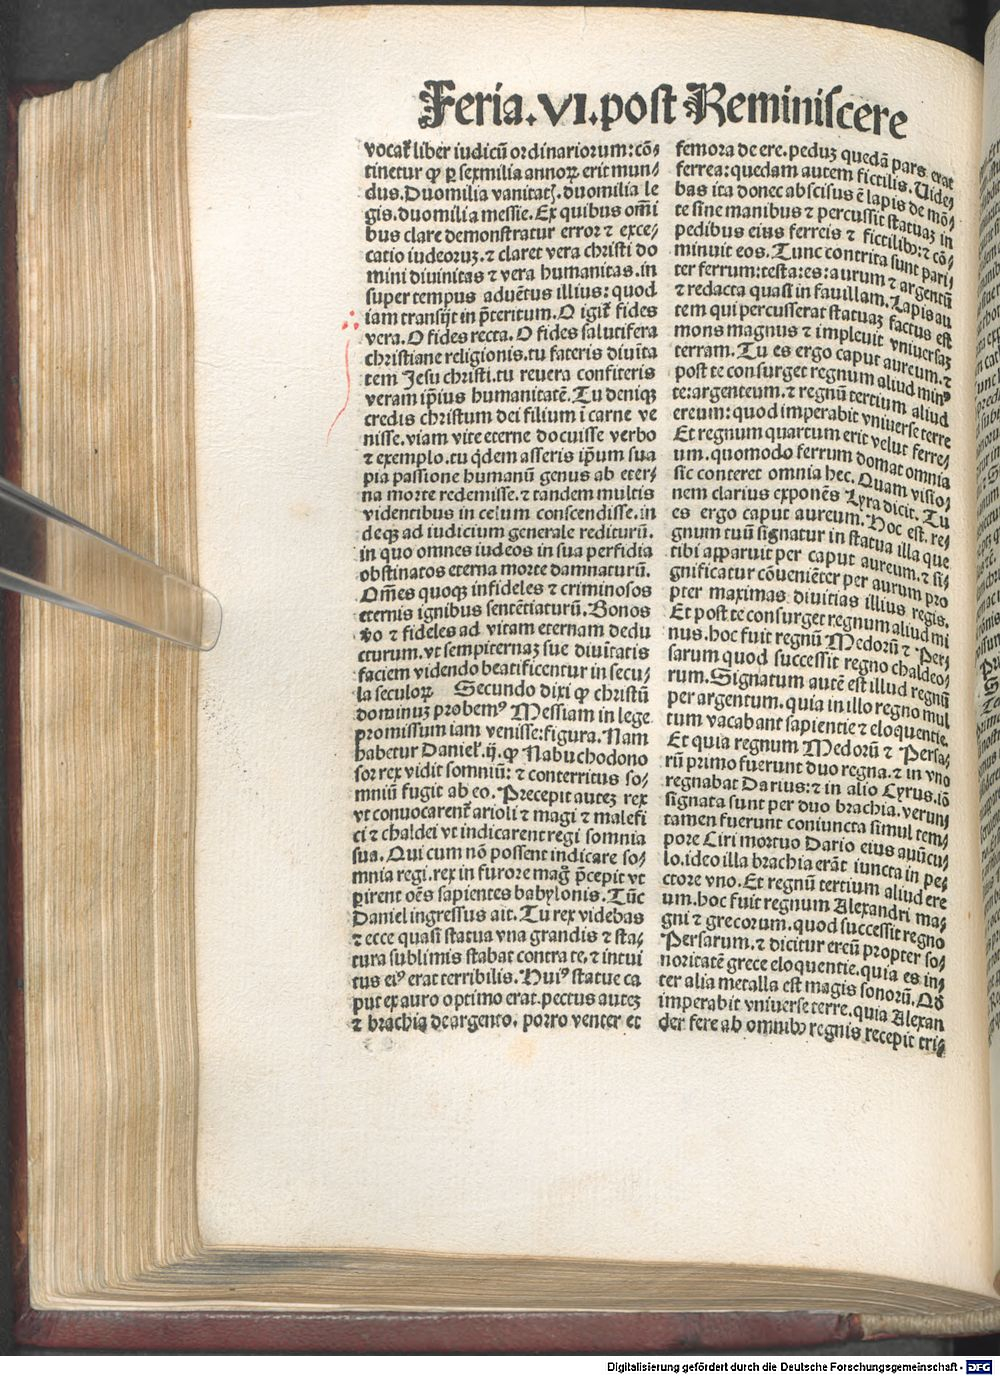 Feria. VI. post Reminiscere
vocat̄ liber iudicū ordinariorum: cō⸗
tinetur ꝙ ꝑ sexmilia annoꝝ erit mun⸗
dus. Duomilia vanitatꝭ. duomilia le
gis. duomilia messie. Ex quibus om̄i
bus clare demonstratur error ⁊ exce⸗
catio iudeoruꝫ. ⁊ claret vera christi do
mini diuinitas ⁊ vera humanitas. in
super tempus aduētus illius: quod
iam transijt in p̄teritum. O igit̄ fides
vera. O fides recta. O fides salutifera
christiane religionis. tu fateris diuīta
tem Jesu christi. tu reuera confiteris
veram ip̄ius humanitatē. Tu deniqꝫ
credis christum dei filium ī carne ve
nisse. viam vite eterne docuisse verbo
⁊ exemplo. tu q̇dem asseris ip̄um sua
pia passione humanū genus ab eter⸗
na morte redemisse. ⁊ tandem multis
videntibus in celum conscendisse. in
deqꝫ ad iudicium generale rediturū.
in quo omnes iudeos in sua perfidia
obstinatos eterna morte damnaturū.
Om̄es quoqꝫ infideles ⁊ criminosos
eternis ignibus sentētiaturū. Bonos
v̊o ⁊ fideles ad vitam eternam dedu
cturum. vt sempiternaꝫ sue diuītatis
faciem videndo beatificentur in secu⸗
la seculoꝝ Secundo dixi ꝙ christū
dominuꝫ probemꝰ Messiam in lege
promissum iam venisse: figura. Nam
habetur Daniel̄. ij. ꝙ Nabuchodono
sor rex vidit somniū: ⁊ conterritus so⸗
mniū fugit ab eo. Precepit auteꝫ rex
vt conuocarent̄ arioli ⁊ magi ⁊ malefi
ci ⁊ chaldei vt indicarent regi somnia
sua. Qui cum nō possent indicare so⸗
mnia regi. rex in furore mag̊ p̄cepit vt
ꝑirent oēs sapientes babylonis. Tūc
Daniel ingressus ait. Tu rex videbas
⁊ ecce quasi statua vna grandis ⁊ sta⸗
tura sublimis stabat contra te. ⁊ intui
tus eiꝰ erat terribilis. Huiꝰ statue ca
put ex auro optimo erat. pectus auteꝫ
⁊ brachia de argento. porro venter et
femora de ere. peduꝫ quedā pars erat
ferrea: quedam autem fictilis. Uide⸗
bas ita donec abscisus ē lapis de mō⸗
te sine manibus ⁊ percussit statuaꝫ in
pedibus eius ferreis ⁊ fictilibꝫ: ⁊ cō⸗
minuit eos. Tunc contrita sunt pari⸗
ter ferrum: testa: es: aurum ⁊ argentū
⁊ redacta quasi in fauillam. Lapis au
tem qui percusserat statuaꝫ factus est
mons magnus ⁊ impleuit vniuersaꝫ
terram. Tu es ergo caput aureum. ⁊
post te consurget regnum aliud minꝰ
te: argenteum. ⁊ regnū tertium aliud
ereum: quod imperabit vniuerse terre
Et regnum quartum erit velut ferre⸗
um. quomodo ferrum domat omnia
sic conteret omnia hec. Quam visio⸗
nem clarius exponēs Lyra dicit. Tu
es ergo caput aureum. Hoc est. re⸗
gnum tuū signatur in statua illa que
tibi apparuit per caput aureum. ⁊ si⸗
gnificatur cōueniēter per aurum pro
pter maximas diuitias illius regis.
Et post te consurget regnum aliud mi
nus. hoc fuit regnū Medorū ⁊ Per⸗
sarum quod successit regno chaldeo⸗
rum. Signatum autē est illud regnū
per argentum. quia in illo regno mul
tum vacabant sapientie ⁊ eloquentie.
Et quia regnum Medorū ⁊ Persa⸗
rū primo fuerunt duo regna. ⁊ in vno
regnabat Darius: ⁊ in alio Cyrus. iō
signata sunt per duo brachia. verun⸗
tamen fuerunt coniuncta simul tem⸗
pore Ciri mortuo Dario eius auūcu⸗
lo. ideo illa brachia erāt iuncta in pe⸗
ctore vno. Et regnū tertium aliud ere
um. hoc fuit regnum Alexandri ma⸗
gni ⁊ grecorum. quod successit regno
Persarum. ⁊ dicitur ereū propter so⸗
noritatē grece eloquentie. quia es in⸗
ter alia metalla est magis sonorū. Qđ
imperabit vniuerse terre. quia Alexan
der fere ab omnibꝫ regnis recepit tri⸗
Digitalisierung gefördert durch die Deutsche Forschungsgemeinschaft - DFG